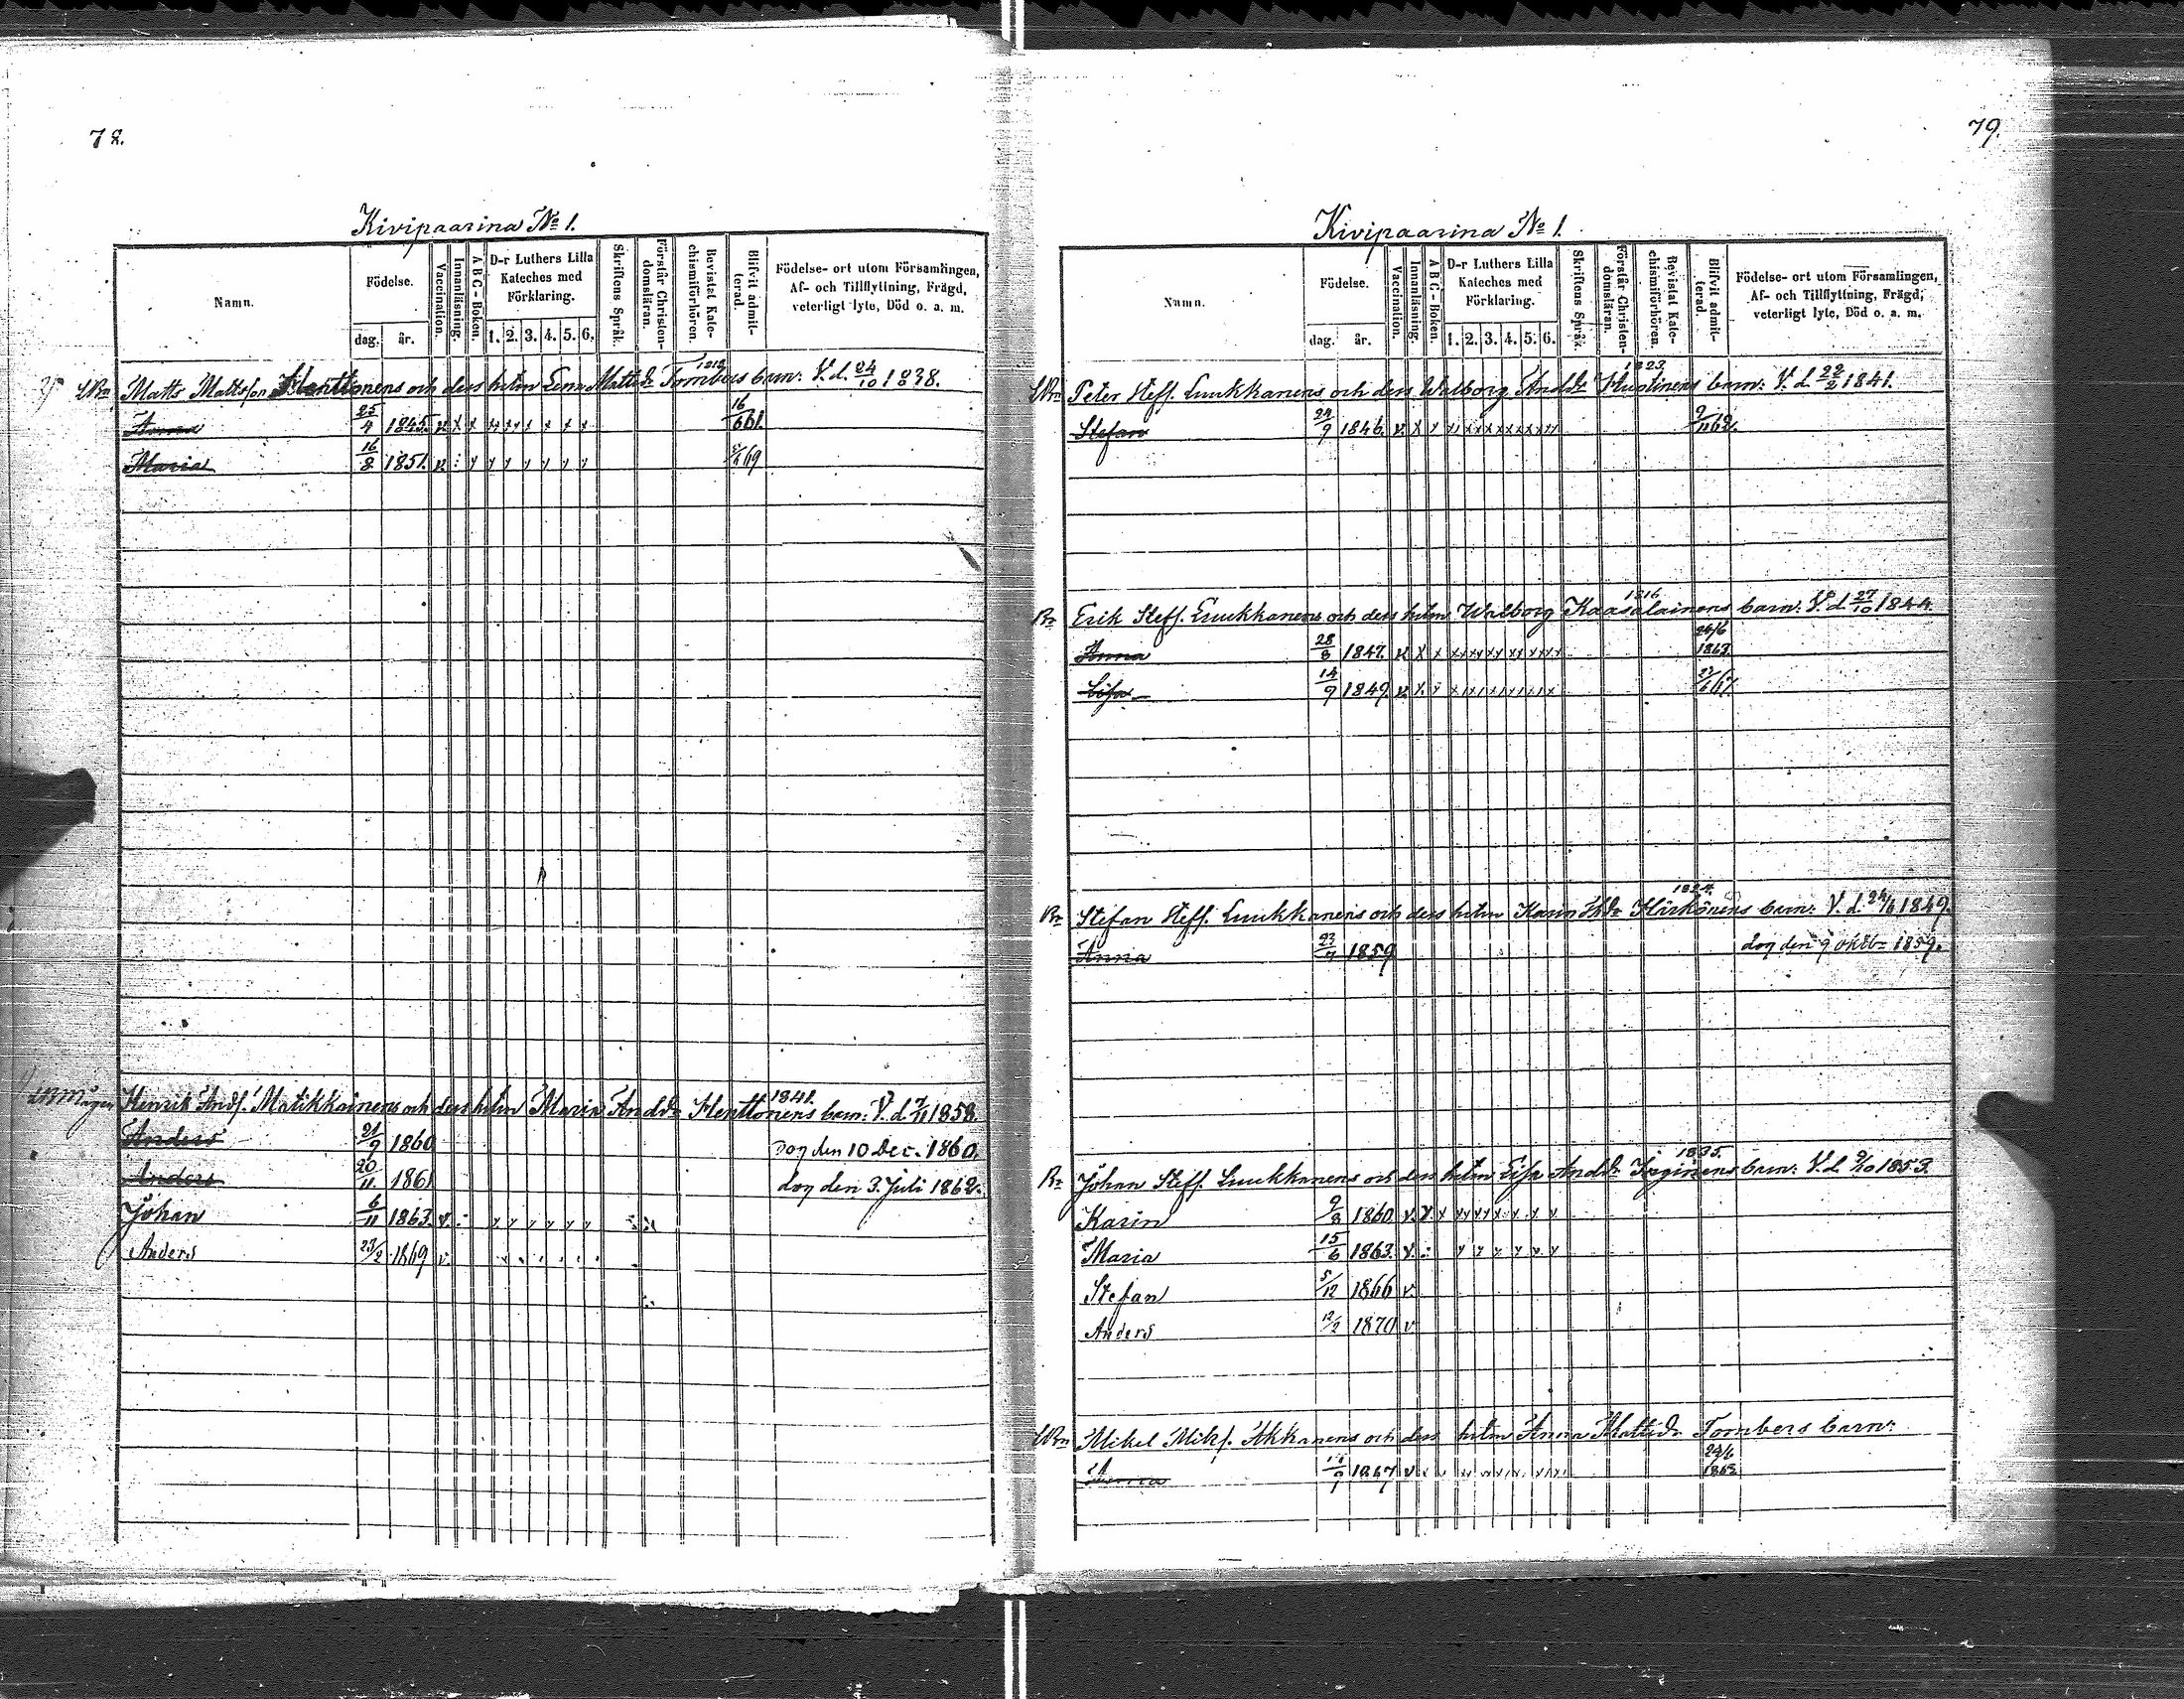 78.
Kivipaarina No 1.
Namn.
Födelse.
dag. år.
Vaccination.
Innanläsning.
A B C - Boken.
D-r Luthers Lilla Kateches med Förklaring.
1. 2. 3. 4. 5. 6.
Skriftens Språk.
Förstår Christendomsläran.
Bevistat Katechismiförhören.
Blifvit admitterad.
Födelse- ort utom Församlingen, Af- och Tillflyttning, Frägd, veterligt lyte, Död o. a. m.
Matts Mattsson Henttonens och dess hstru Lena Mattsdr Tombers barn: V. d. 24/10 1838.
Anna 25/4 1845. v. x x x x x x x x 16/6 61.
Maria 16/8 1851. v. : y y y y y y y 69
Henrik Andf. Matikkainens och dess hstru Maria Anddr Henttonens barn: V. d. 7/11 1858.
1841.
Anders 21/9 1860 Dog den 10 Dec. 1860.
Anders 20/11 1861 dog den 3. Juli 1862.
Johan 6/11 1863. v. : y y y y y y
Anders 23/2 1869 v.
79.
Kivipaarina No 1.
Namn.
Födelse.
dag. år.
Vaccination.
Innanläsning.
A B C - Boken.
D-r Luthers Lilla Kateches med Förklaring.
1. 2. 3. 4. 5. 6.
Skriftens Språk.
Förstår Christendomsläran.
Bevistat Katechismiförhören.
Blifvit admitterad.
Födelse- ort utom Församlingen, Af- och Tillflyttning, Frägd, veterligt lyte, Död o. a. m.
1823
Peter Steff. Luukkanens och dess Walborg Anddr Hustinens barn: V. d. 22/2 1841.
Stefan 24/9 1846. v. x x x x x x x x x x x 9/11 62.
1816
Erik Steff. Luukkanens och dess hstru Walborg Kaasalainens barn: V. d. 27/10 1844.
Anna 28/8 1847. v. x x x x x x x x x x x 24/6 1863.
Eifa 14/9 1849. v. x. x x x x x x x x x 67.
1824.
Stefan Steff. Luukkanens och dess hstru Karin Härkönens barn: V. d. 1849.
Anna 23/7 1859 dog den 9 Oktbr 1859.
1835.
Johan Steff. Luukkanens och dess hstru Eifa Anddr Inginens barn: V. d. 9/10 1853.
Karin 9/8 1860 v. x x x x x x x x x
Maria 15/6 1863. v. : y y y y y y
Stefan 5/12 1866 v.
Anders 12/2 1870 v
Mikel Mikf. Akkanens och dess hstru Anna Mattsdr Tombers barn:
Anna 1847 v 24/6 1863